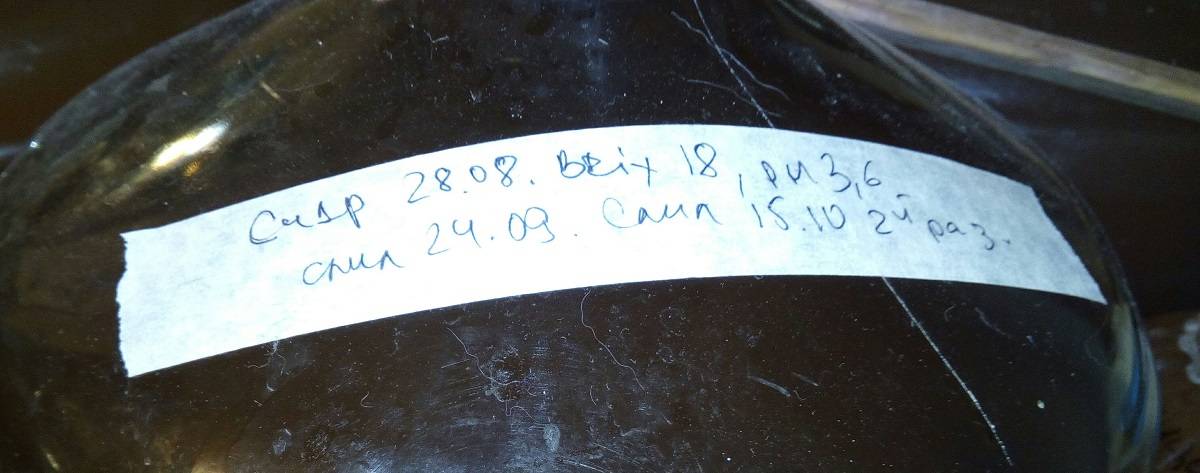 Сидр 28.08. Brix 18, рн 3,6
слил 24.09. Слил 15.10 2й раз.